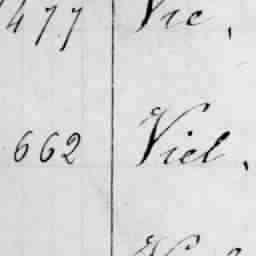 1477 Vic,
662 Viel,